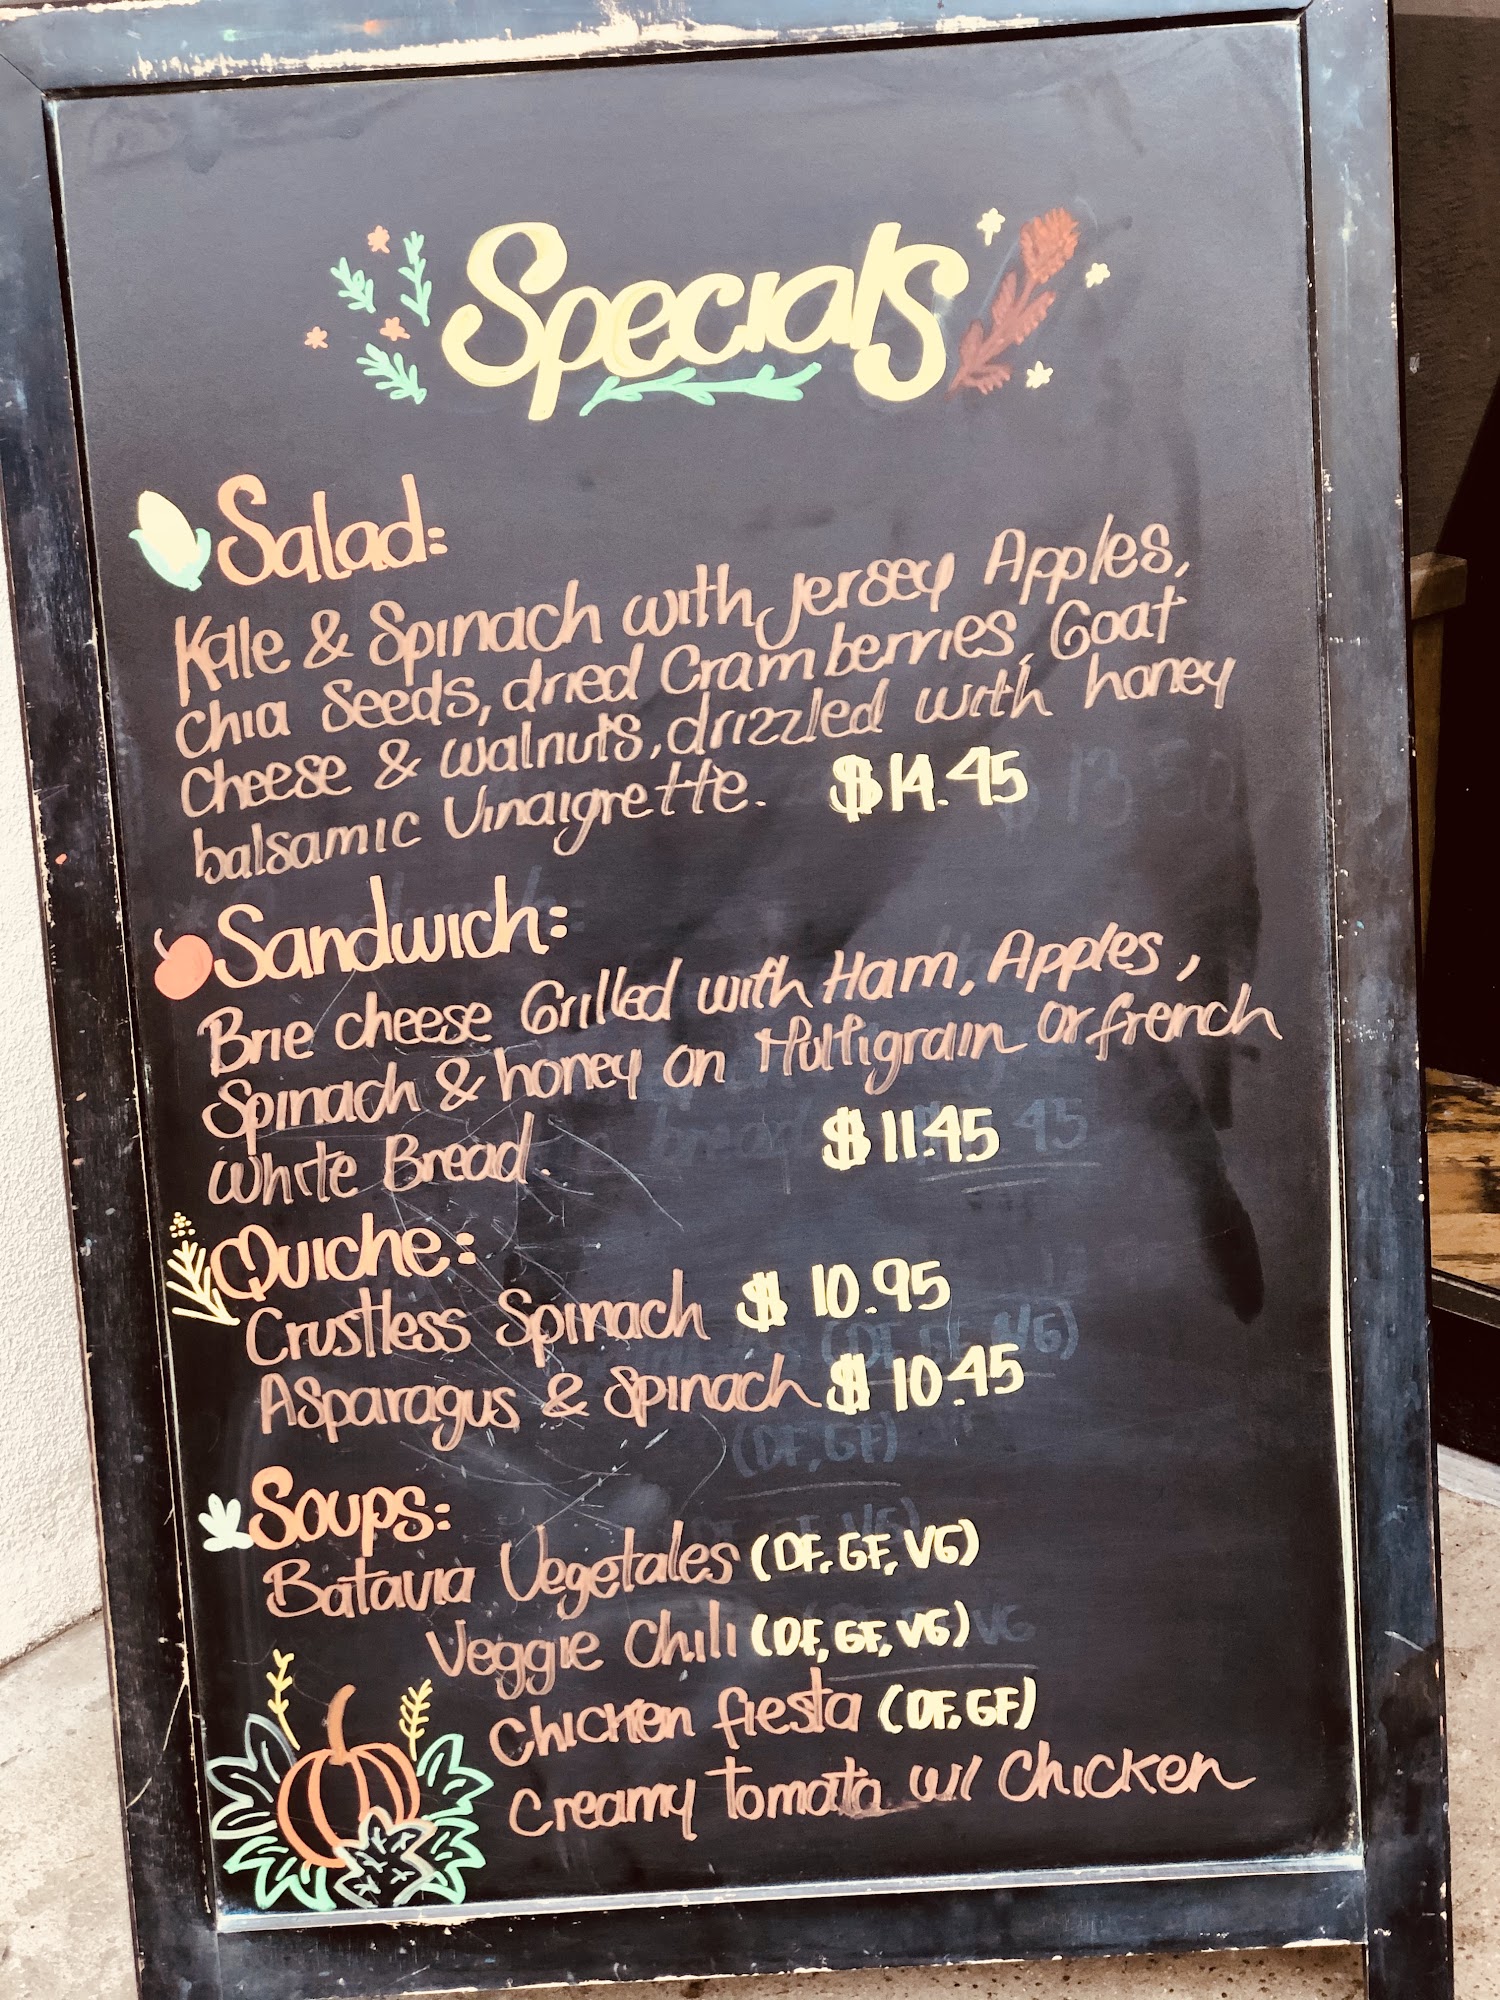 Specials
Salad:
Kale & Spinach with Jersey Apples,
Chia Seeds, dried Cramberries, Goat
Cheese & walnuts, drizzled with honey
balsamic Vinaigrette. $14.45
Sandwich:
Brie cheese Grilled with Ham, Apples,
Spinach & honey on Multigrain or french
White Bread. $11.45
Quiche:
Crustless Spinach $10.95
Asparagus & Spinach $10.45
Soups:
Batavia Vegetales (DF, GF, VG)
Veggie Chili (DF, GF, VG)
Chicken fiesta (DF, GF)
Creamy Tomata w/ Chicken